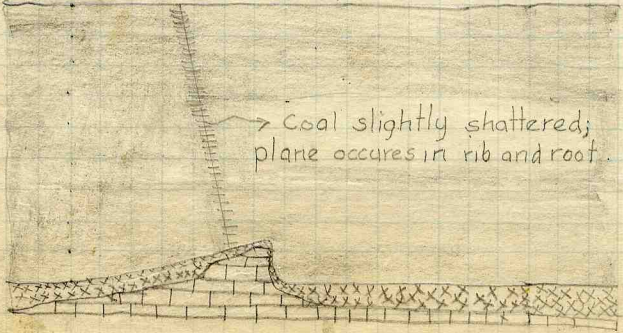 Coal slightly shattered;
plane occures in rib and root.